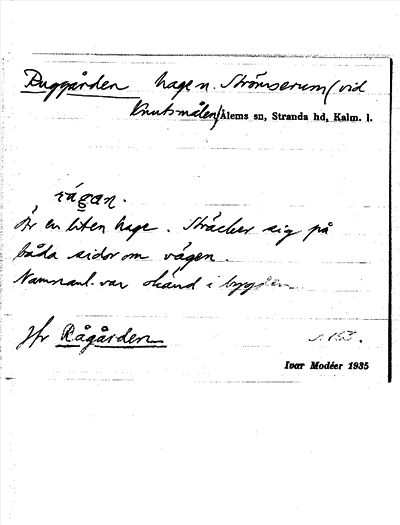 Ruggården hage n. Strömserum (vid
Knutsmålen) Ålems sn, Stranda hd, Kalm. l.
rågan.
Är en liten hage. Sträcker sig på
båda sidor om vägen.
Namnanl. var okänd i bygden
Jfr Rågården s. 163.
Ivar Modéer 1935